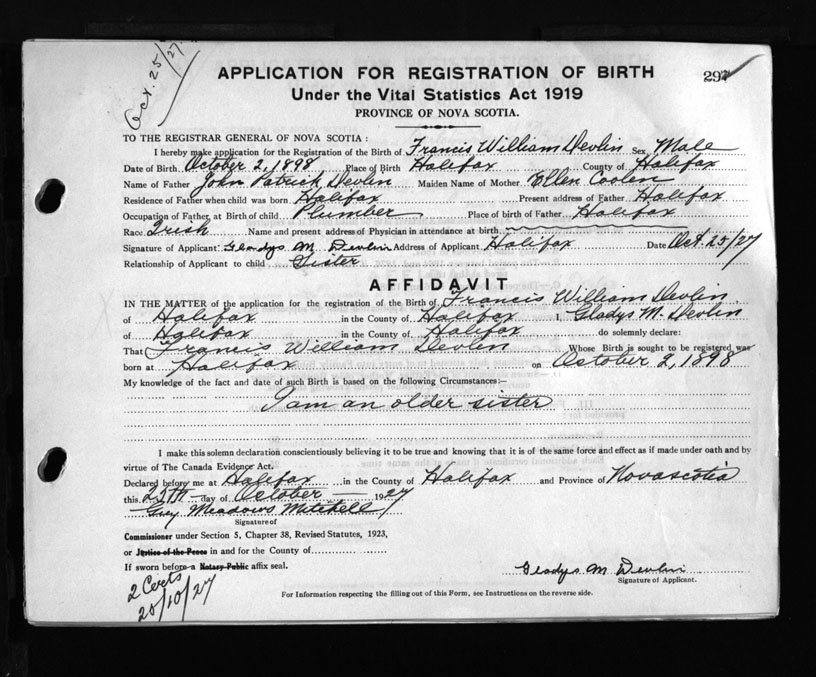 Oct. 25/27.
297
APPLICATION FOR REGISTRATION OF BIRTH
Under the Vital Statistics Act 1919
PROVINCE OF NOVA SCOTIA.
TO THE REGISTRAR GENERAL OF NOVA SCOTIA :
I hereby make application for the Registration of the Birth of Francis William Devlin Sex Male
Date of Birth October 2, 1898 Place of Birth Halifax County of Halifax
Name of Father John Patrick Devlin Maiden Name of Mother Ellen Coolen
Residence of Father when child was born Halifax Present address of Father Halifax
Occupation of Father at Birth of child Plumber Place of birth of Father Halifax
Race Irish Name and present address of Physician in attendance at birth
Signature of Applicant: Gladys M. Devlin Address of Applicant Halifax Date Oct. 25/27
Relationship of Applicant to child Sister
AFFIDAVIT
IN THE MATTER of the application for the registration of the Birth of Francis William Devlin
of Halifax in the County of Halifax I, Gladys M. Devlin
of Halifax in the County of Halifax do solemnly declare:
That Francis William Devlin Whose Birth is sought to be registered was
born at Halifax on October 2, 1898
My knowledge of the fact and date of such Birth is based on the following Circumstances:—
I am an older sister
I make this solemn declaration conscientiously believing it to be true and knowing that it is of the same force and effect as if made under oath and by
virtue of The Canada Evidence Act.
Declared before me at Halifax in the County of Halifax and Province of Nova Scotia
this 25TH day of October 1927
Guy Meadows Mitchell
Signature of
Commissioner under Section 5, Chapter 38, Revised Statutes, 1923,
or Justice of the Peace in and for the County of
If sworn before a Notary Public affix seal.
Gladys M Devlin
Signature of Applicant.
2 Certs
25/10/27
For Information respecting the filling out of this Form, see Instructions on the reverse side.